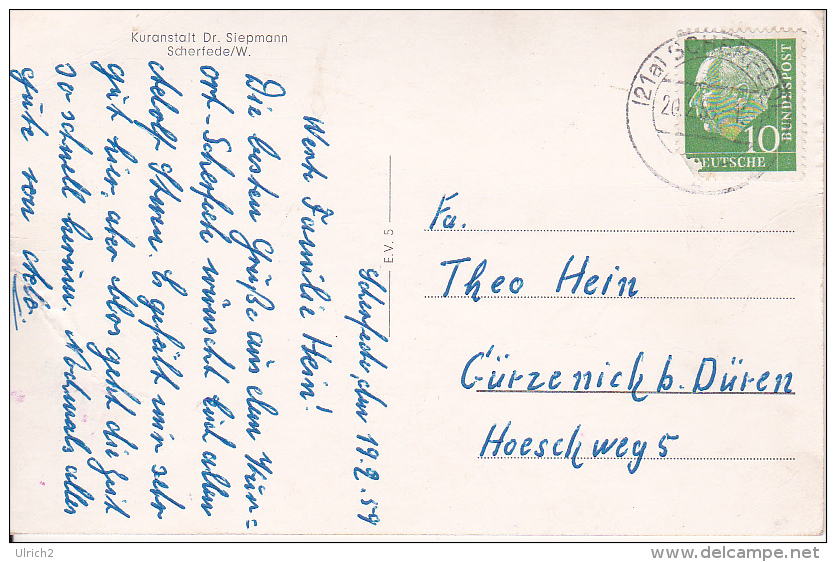 Kuranstalt Dr. Siepmann
Scherfede/W.
Scherfede, den 19.2.59
Werte Familie Hein!
Die besten Grüße aus dem Kur=
ort-Scherfede wünscht Euch allen
Adolf Ihnen. Es gefällt mir sehr
gut hier, aber blos geht die Zeit
so schnell herum. Nochmals alles
gute von
E.V. 5
(21a) SCHERFEDE
20.2.59
10
DEUTSCHE
BUNDESPOST
Fa.
Theo Hein
Gürzenich b. Düren
Hoeschweg 5
Ulrich2
www.delcampe.net